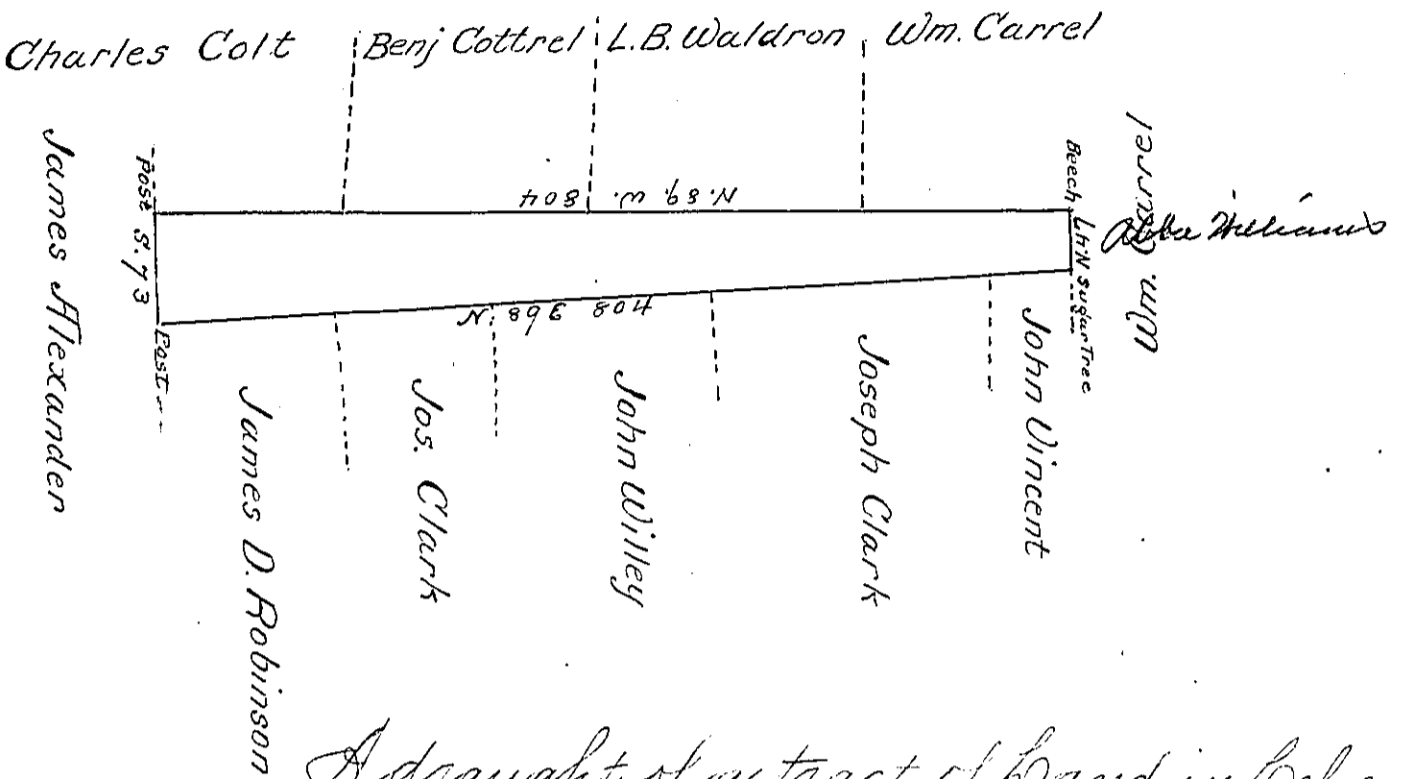 Charles Colt
Benj Cottrel
L.B. Waldron
Wm. Carrel
James Alexander
Post S. 73
Post
N. 89. W. 804
Beech
Sugar Tree
Wm. Carrel
Williams
N. 89 E 804
James D. Robinson
Jos. Clark
John Willey
Joseph Clark
John Vincent
A draught of a tract of Land in